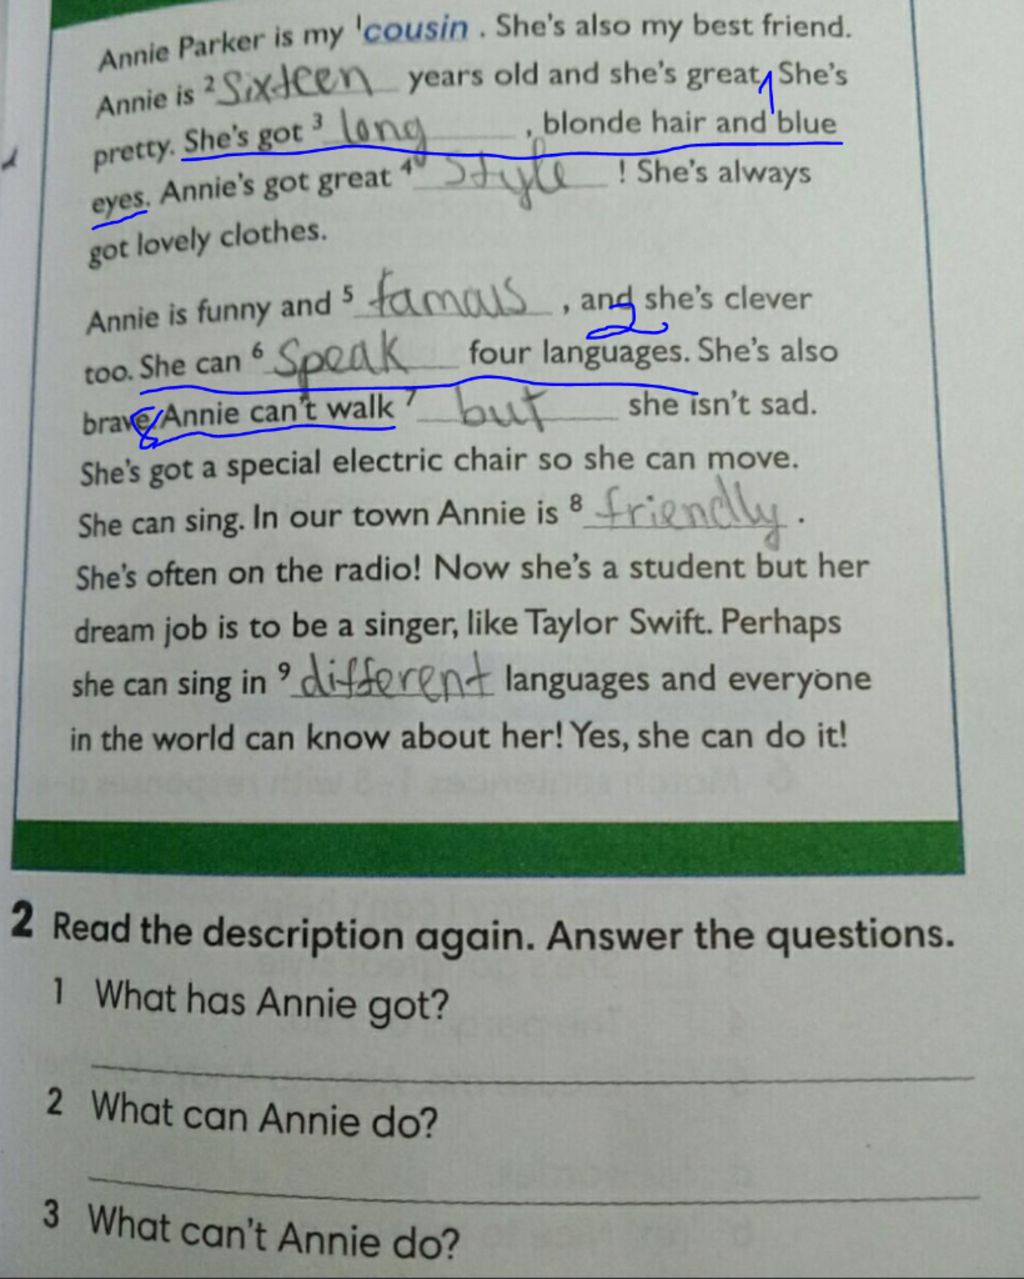 Annie Parker is my ¹cousin . She's also my best friend.
Annie is ² Sixteen years old and she's great. She's
1
pretty. She's got ³ long , blonde hair and blue
eyes. Annie's got great ⁴ Style ! She's always
got lovely clothes.
Annie is funny and ⁵ famous , and she's clever
2
too. She can ⁶ Speak four languages. She's also
brave. Annie can't walk ⁷ but she isn't sad.
She's got a special electric chair so she can move.
She can sing. In our town Annie is ⁸ friendly .
She's often on the radio! Now she's a student but her
dream job is to be a singer, like Taylor Swift. Perhaps
she can sing in ⁹ different languages and everyone
in the world can know about her! Yes, she can do it!
2 Read the description again. Answer the questions.
1 What has Annie got?
2 What can Annie do?
3 What can't Annie do?